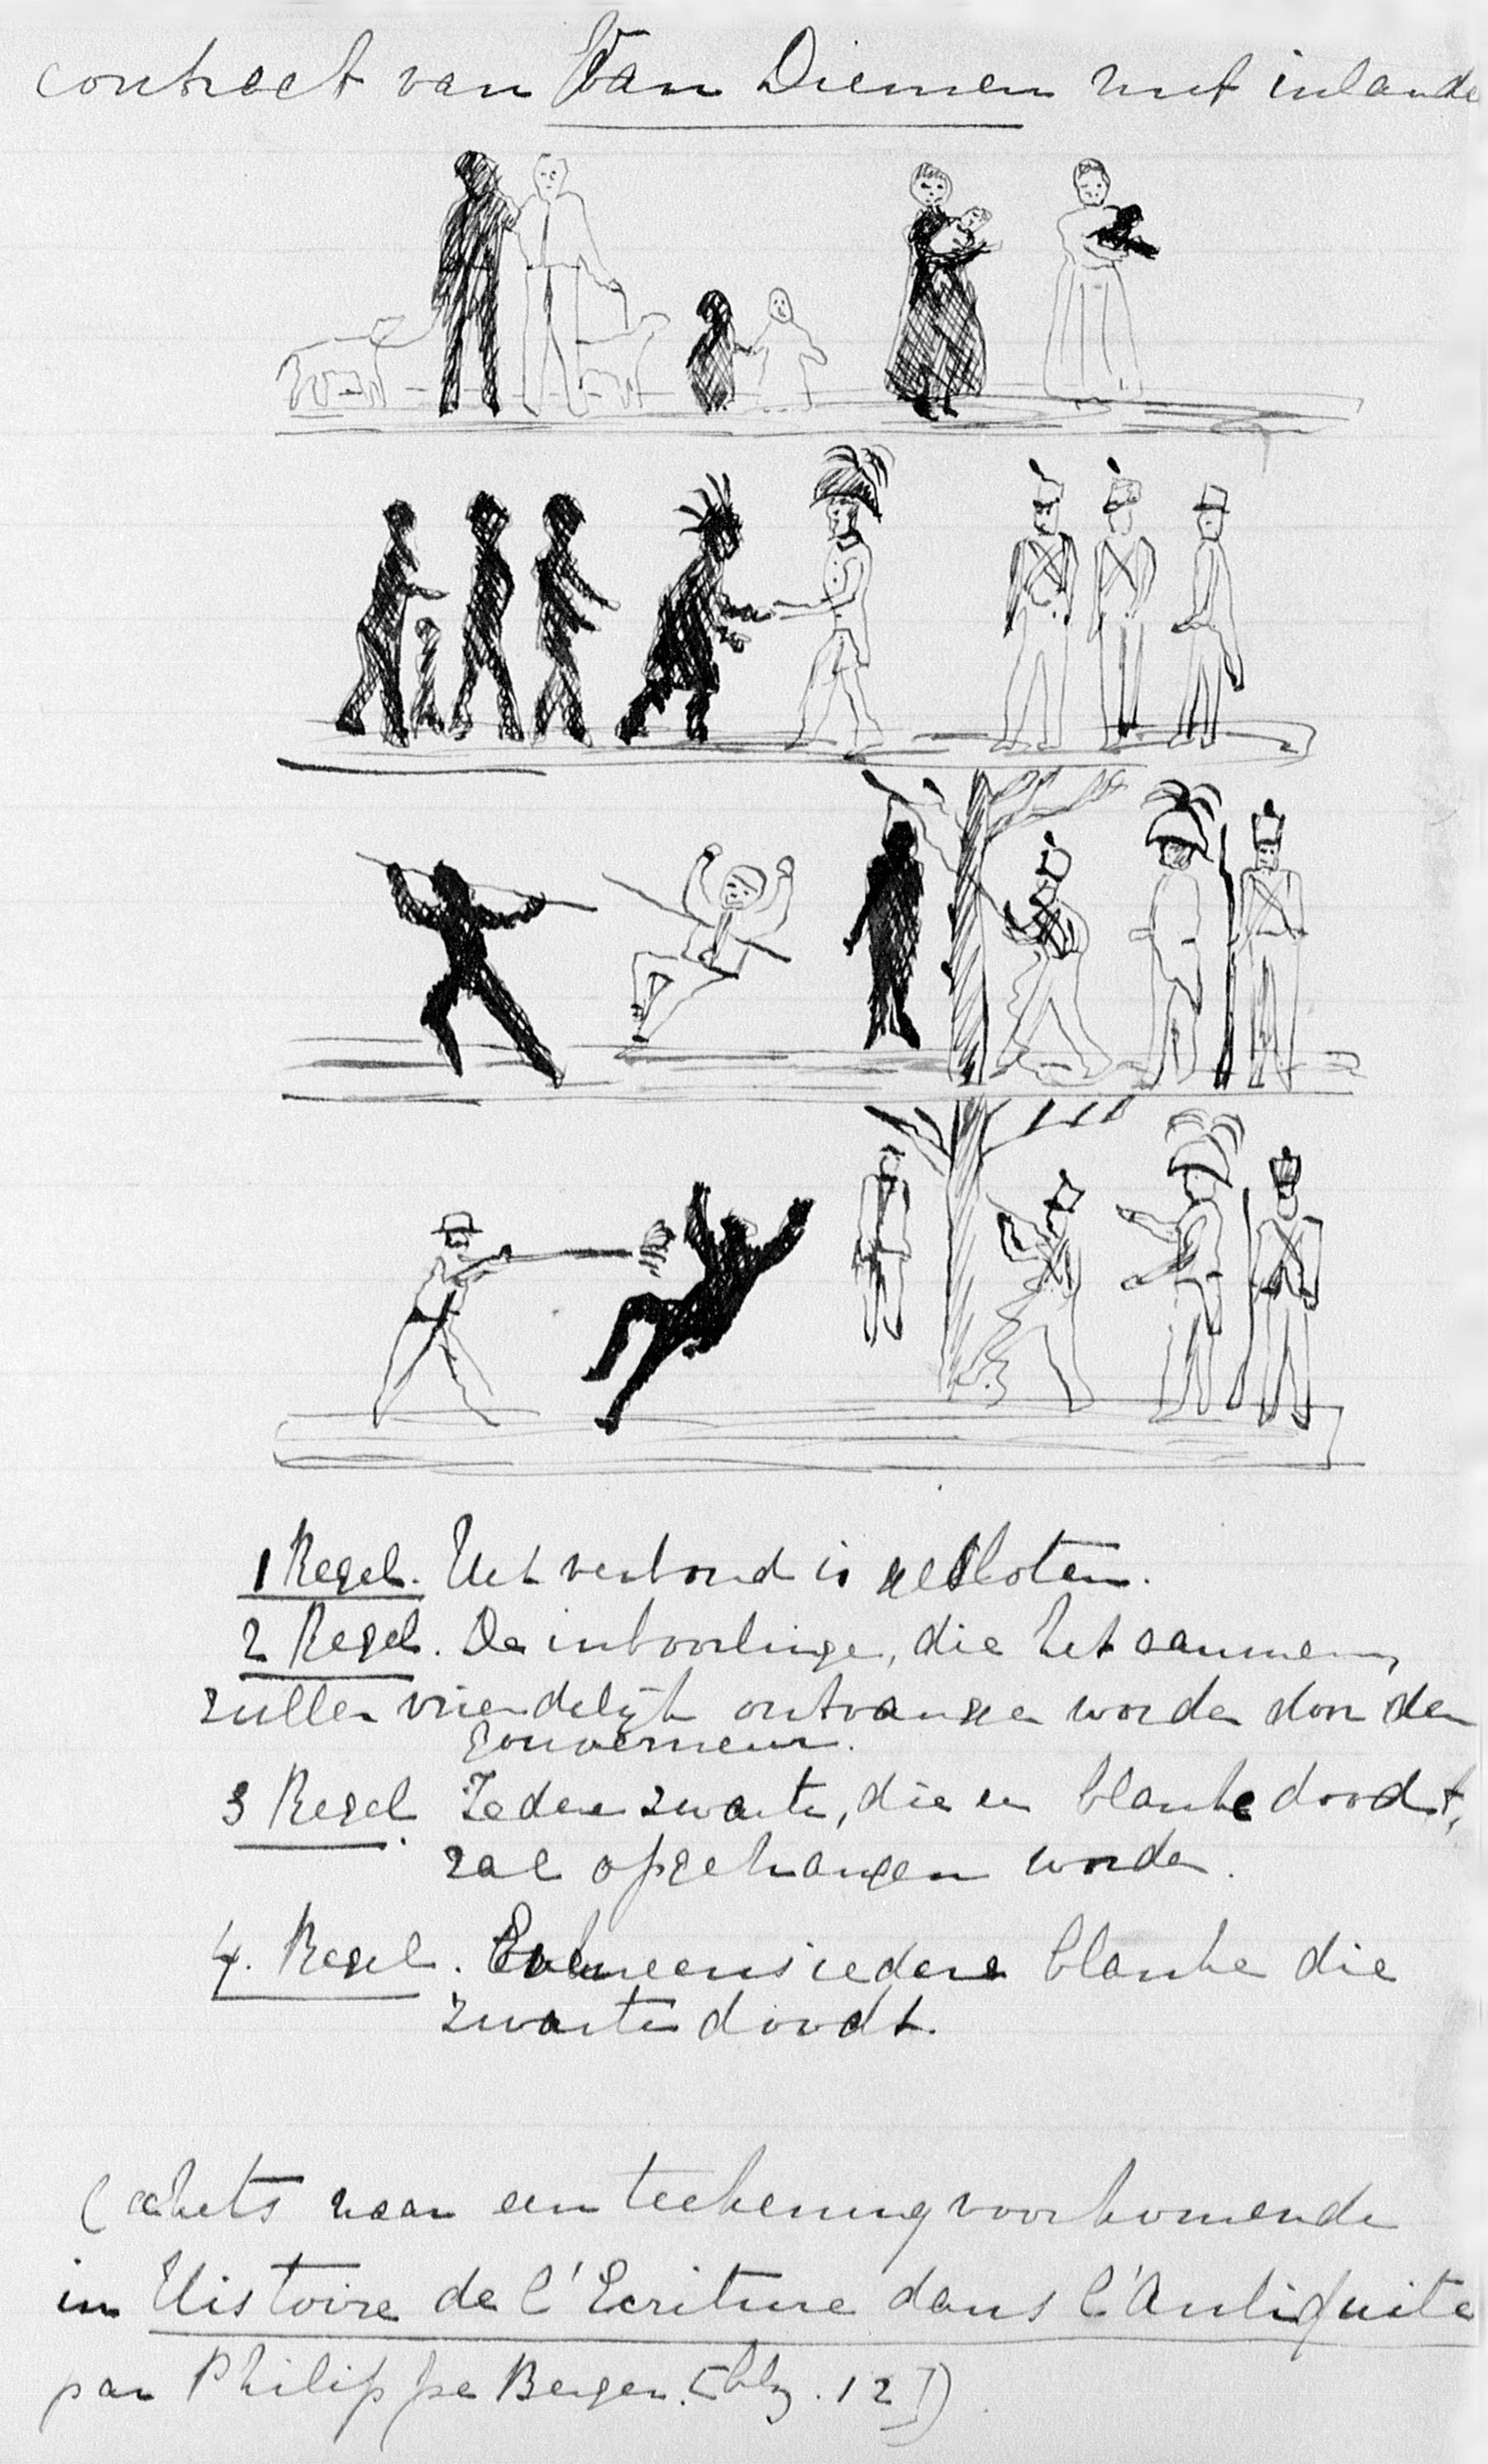 contract van Van Diemen met inlande
1 Regel. Het verbond is gesloten.
2 Regel. De inboorlinge, die het aannemen,
zullen vriendelijk ontvangen worden door den
gouverneur.
3 Regel Iedere zwarte, die een blanke doodt,
zal opgehangen worden.
4. Regel. Eveneens iedere blanke die
zwarte doodt.
(schets naar een teekening voorkomende
in Histoire de l'Ecriture dans l'Antiquité
par Philippe Berger. [blz. 12])